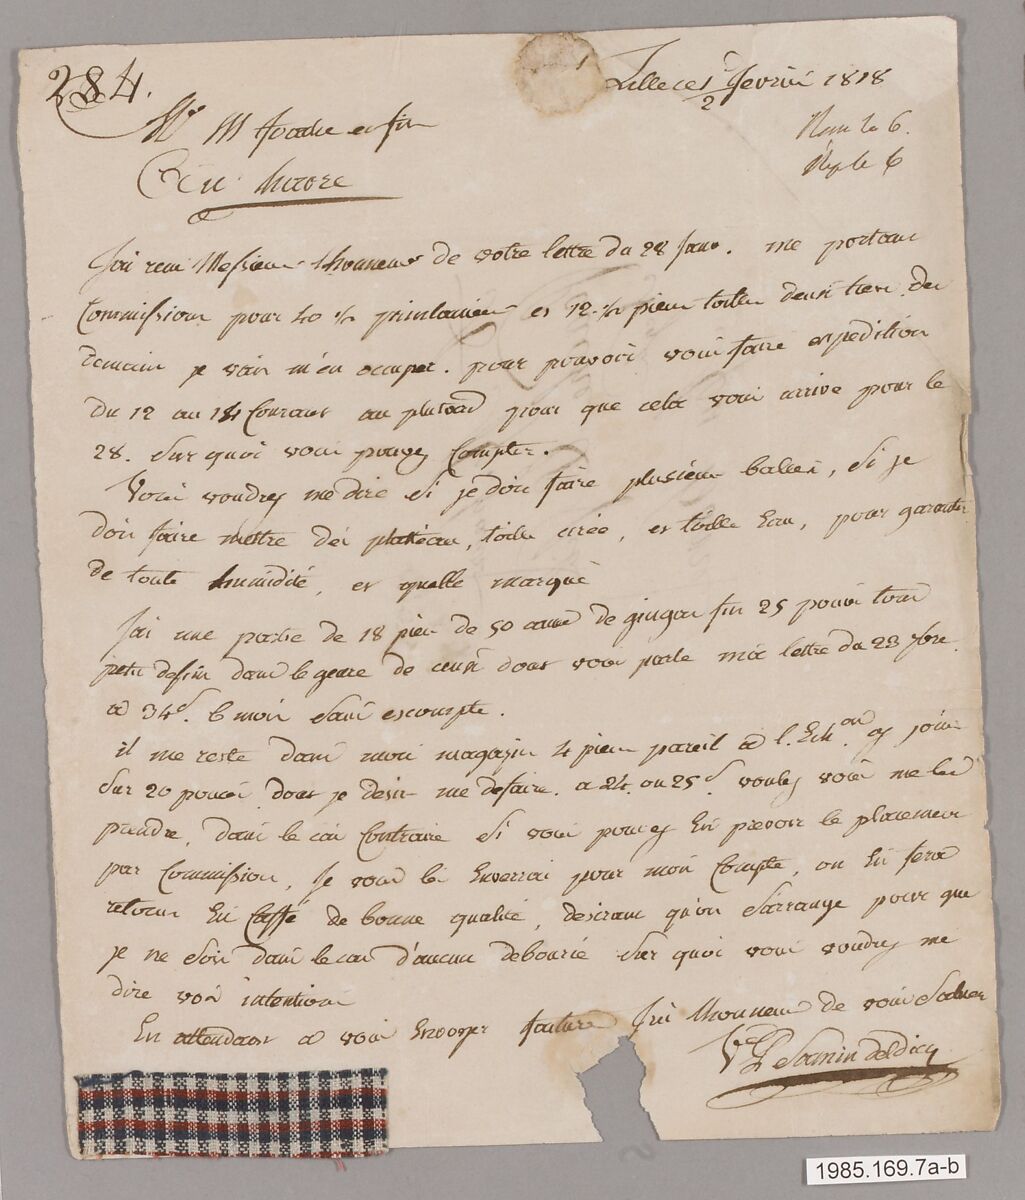 284.
Lille ce 2 fevrier 1818
Mr M fils
Au havre
J'ai recu Messieurs l'honneur de votre lettre du 28 Janv. me portant
Commission pour 40 printanieres et 12 pieces toiles des
demain je vais m'en occuper. pour pouvoir vous faire expedition
du 12 au 14 Courant au plutard pour que cela vous arrive pour le
28. Sur quoi vous pouvez Compter.
Vous voudrez me dire Si je dois faire plusieurs balles, Si je
dois faire mettre des plateau, toille cirée, et toille, pour garantir
de toute humidité, et quelle marque
J'ai une partie de 18 pieces de 50 de gingas fin 25 pouces
petit dessin dans le genre de ceux dont vous parle ma lettre du 23
a 34s. 6 mois Sans escompte.
il me reste dans mon magasin 4 pieces pareil a l'Echon. cy joint
Sur 20 pouces dont je desire me defaire a 24 ou 25s. voulez vous me les
prendre, dans le cas Contraire Si vous pouvez En prevoir le placement
par Commission, Je vous les Enverrai pour mon Compte, on En fera
retour En Caffé de bonne qualité, desirant qu'on S'arrange pour que
je ne Sois dans le cas d'aucun deboursé Sur quoi vous voudrez me
dire vos intentions
En attendant a vous Envoyer facture J'ai l'honneur de vous Saluer
1985.169.7a-b